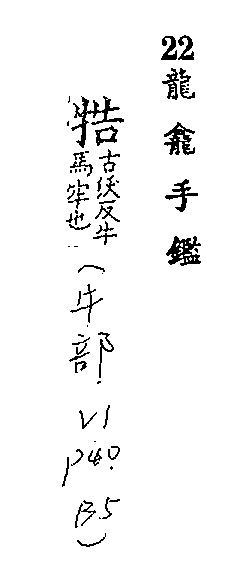 22龍龕手鑑
牿古沃反牛
馬牢也
(牛部 V1 P40. B5)